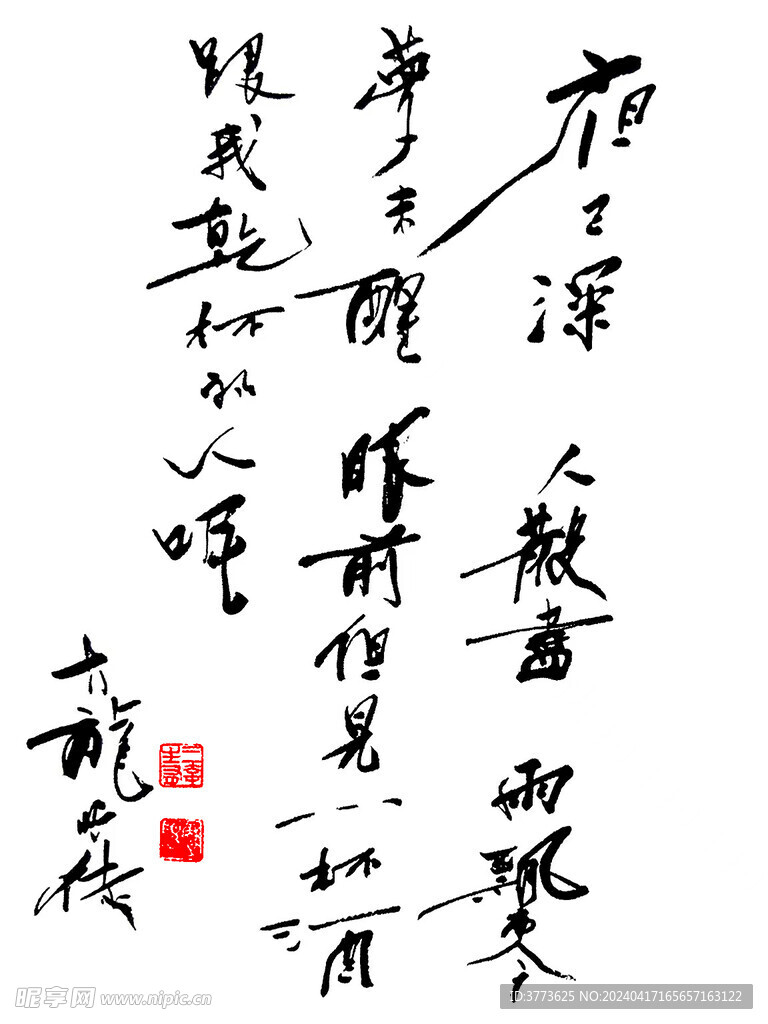 夜已深 人散盡 雨飄零
夢未醒 眼前但見一杯酒
跟我乾杯的人呢
古龍
昵享网 www.nipic.cn
ID:3773625 NO:20240417165657163122